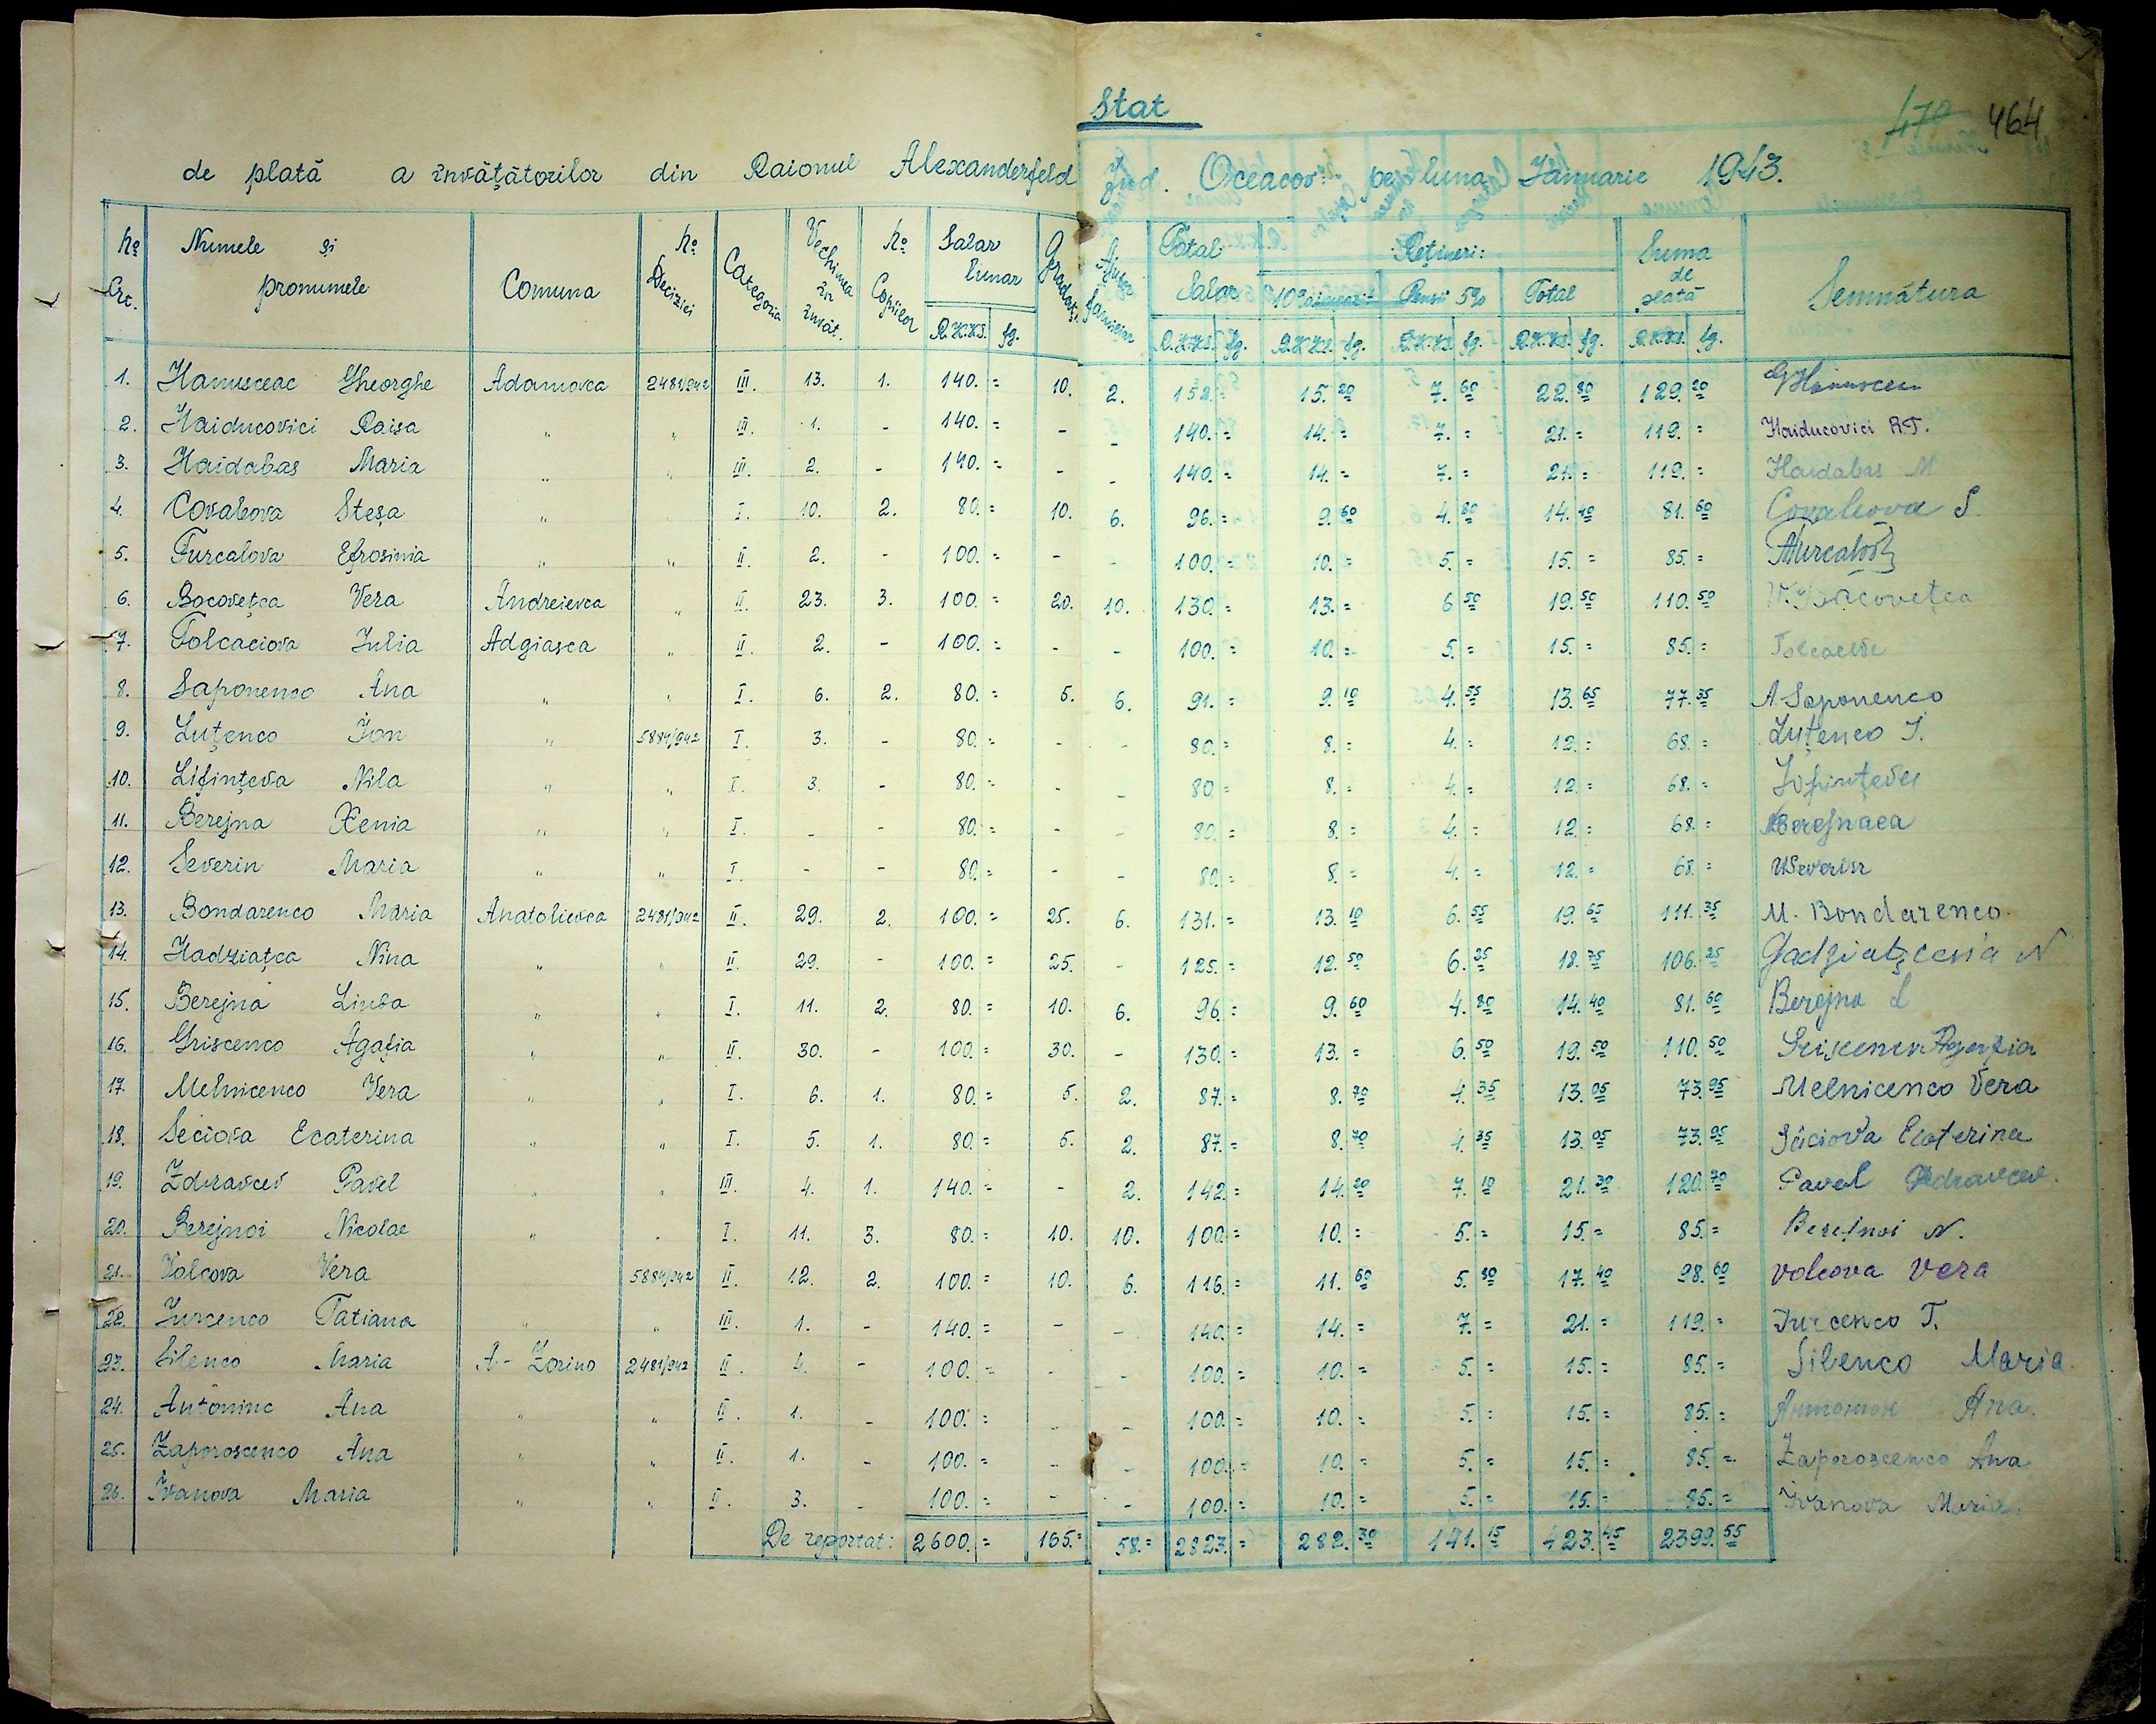 Stat
470 464
de plată a învăţătorilor din Raionul Alexanderfeld Jud. Oceacov pe luna Ianuarie 1943.
No Crt. Numele şi pronumele Comuna No Deciziei Categoria Vechimea în învăt. No Copiilor Salar lunar R.K.KS. fg. Gradaţ. Ajutor familiar Total Salar R.K.KS. fg. Reţineri: 10% R.K.KS. fg. Pensii 5% R.K.KS. fg. Total R.K.KS. fg. Suma de plată R.K.KS. fg. Semnătura
1. Hanusceac Gheorghe Adamovca 2481/942 III. 13. 1. 140. = 10. 2. 152. = 15. 20 7. 60 22. 80 129. 20 GHanusceac
2. Haiducovici Raisa " " III. 1. - 140. = - - 140. = 14. = 7. = 21. = 119. = Haiducovici R.T.
3. Haidabas Maria " " III. 2. - 140. = - - 140. = 14. = 7. = 21. = 119. = Haidabas M
4. Covaleova Steşa " I. 10. 2. 80. = 10. 6. 96. = 9. 60 4. 80 14. 40 81. 60 Covaleova S.
5. Turcalova Efrosinia " " II. 2. - 100. = - - 100. = 10. = 5. = 15. = 85. = Turcalova
6. Bocoveţca Vera Andreievca " II. 23. 3. 100. = 20. 10. 130. = 13. = 6 50 19. 50 110. 50 V. Bacoveţca
7. Tolcaciova Iulia Adgiasca " II. 2. - 100. = - - 100. = 10. = 5. = 15. = 85. =
8. Saponenco Ana " " I. 6. 2. 80. = 5. 6. 91. = 9. 10 4. 55 13. 65 77. 35 A. Saponenco
9. Luţenco Ion " 5884/942 I. 3. - 80. = - - 80. = 8. = 4. = 12. = 68. = Luţenco I.
10. Lifinţeva Nila " " I. 3. - 80. = - - 80. = 8. = 4. = 12. = 68. = Lifinţeva
11. Berejna Xenia " " I. - - 80. = - - 80. = 8. = 4. = 12. = 68. = Berejnaea
12. Severin Maria " " I. - - 80. = - - 80. = 8. = 4. = 12. = 68. = MSeverin
13. Bondarenco Maria Anatolievca 2481/942 II. 29. 2. 100. = 25. 6. 131. = 13. 10 6. 55 19. 65 111. 35 M. Bondarenco.
14. Hadziaţca Nina " " II. 29. - 100. = 25. - 125. = 12. 50 6. 25 18. 75 106. 25
15. Berejna Liuba " " I. 11. 2. 80. = 10. 6. 96. = 9. 60 4. 80 14. 40 81. 60 Berejna L
16. Griscenco Agafia " " II. 30. - 100. = 30. - 130. = 13. = 6. 50 19. 50 110. 50 Griscenco Agafia
17. Melnicenco Vera " " I. 6. 1. 80. = 5. 2. 87. = 8. 70 4. 35 13. 05 73. 95 Melnicenco Vera
18. Seciova Ecaterina " " I. 5. 1. 80. = 5. 2. 87. = 8. 70 4. 35 13. 05 73. 95 Seciova Ecaterina
19. Zdravcev Pavel " " III. 4. 1. 140. = - 2. 142. = 14. 20 7. 10 21. 30 120. 70 Pavel Zdravcev.
20. Berejnoi Nicolae " " I. 11. 3. 80. = 10. 10. 100. = 10. = 5. = 15. = 85. = Berejnoi N.
21. Volcova Vera 5884/942 II. 12. 2. 100. = 10. 6. 116. = 11. 60 5. 80 17. 40 98. 60 Volcova Vera
22. Iurcenco Tatiana " " III. 1. - 140. = - - 140. = 14. = 7. = 21. = 119. = Iurcenco T.
23. Silenco Maria A - Zorino 2481/942 II. 4. - 100. = - - 100. = 10. = 5. = 15. = 85. = Silenco Maria.
24. Antoninc Ana " " II. 1. - 100. = - - 100. = 10. = 5. = 15. = 85. = Ana.
25. Zaporoscenco Ana " " II. 1. - 100. = - - 100. = 10. = 5. = 15. = 85. = Zaporoscenco Ana
26. Ivanova Maria " " II. 3. - 100. = - - 100. = 10. = 5. = 15. = 85. = Ivanova Maria.
De reportat: 2600. = 165. = 58. = 2823. = 282. 30 141. 15 423. 45 2399. 55